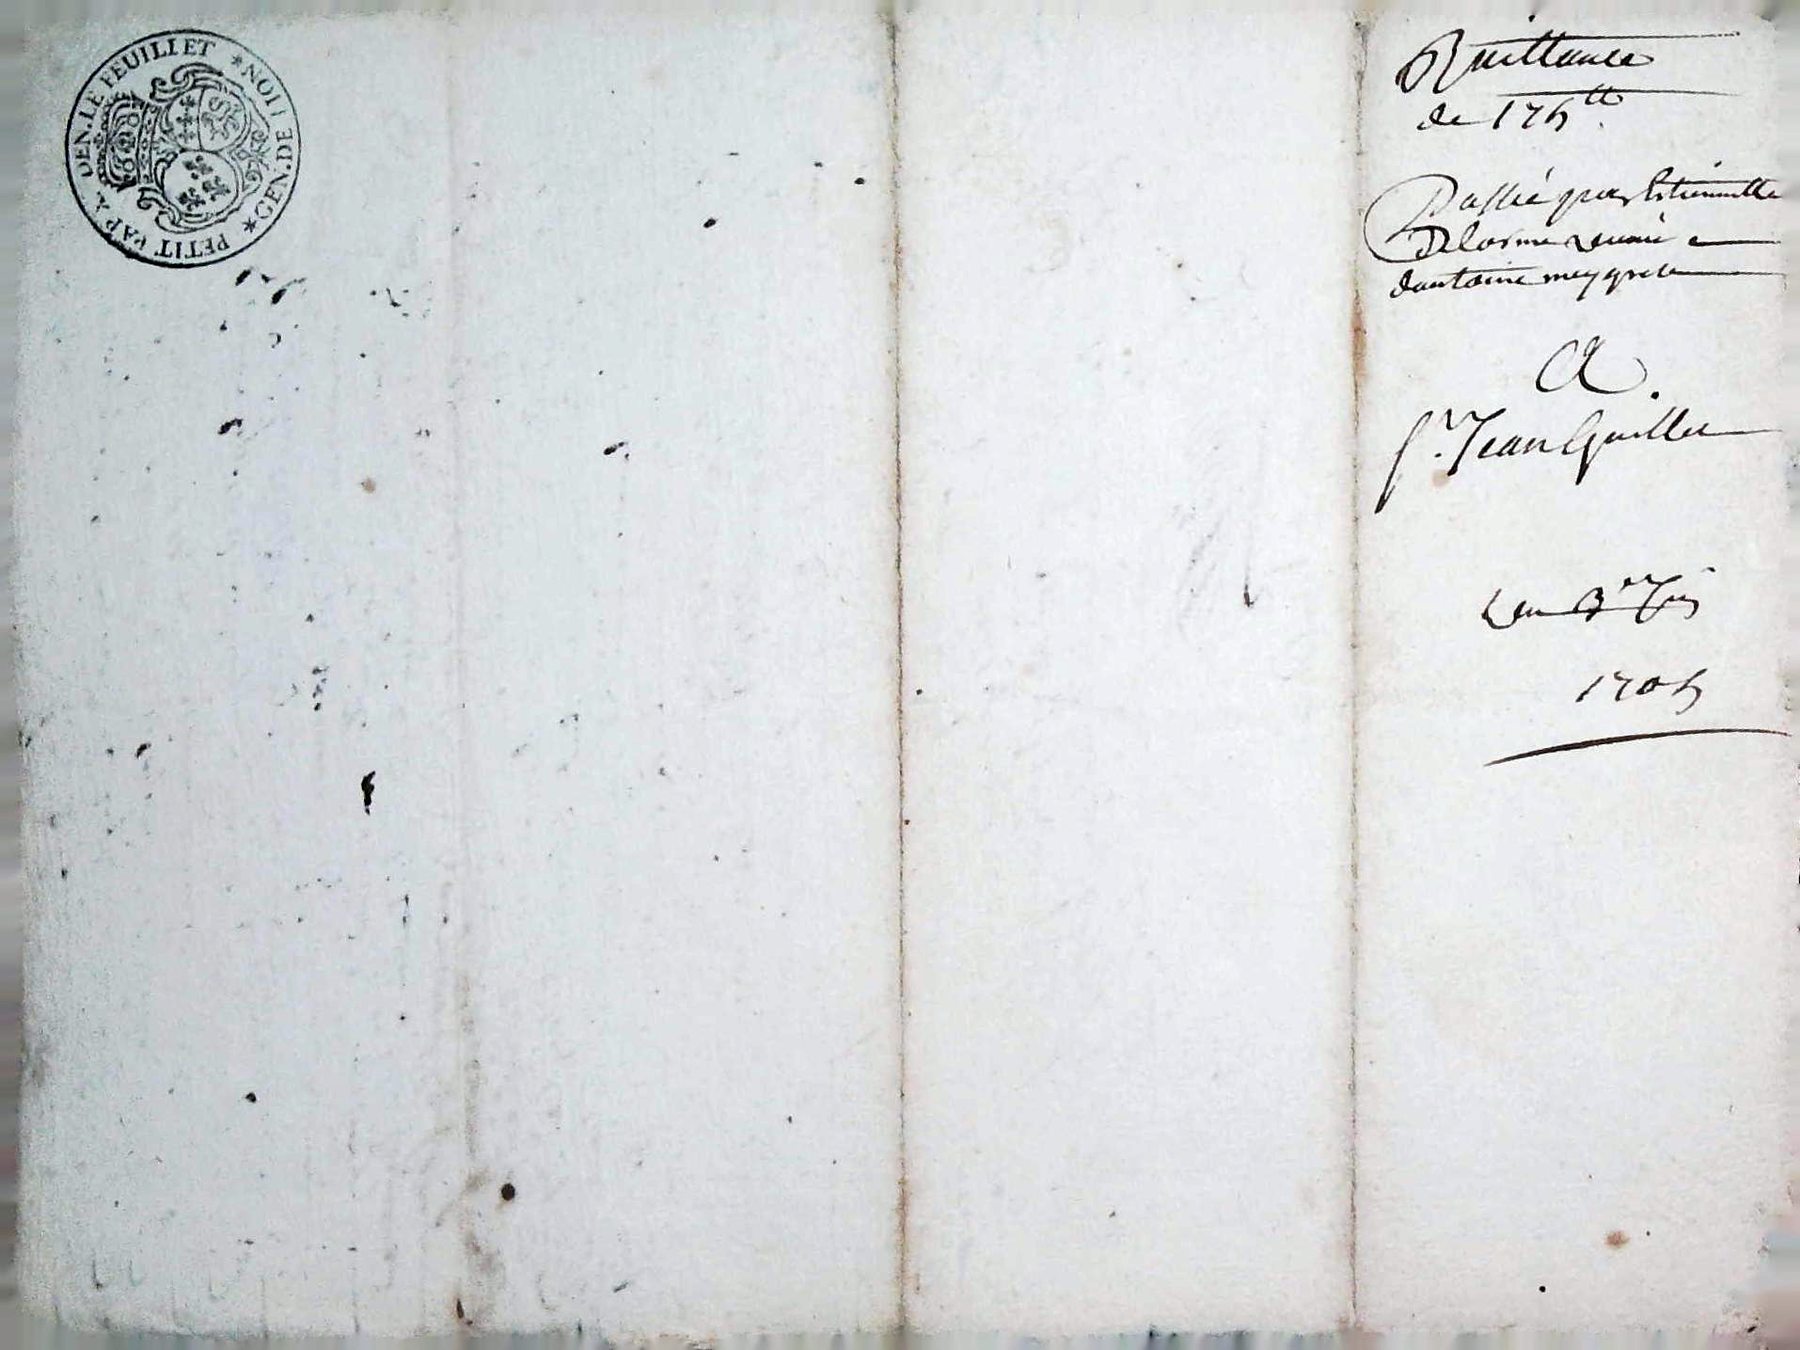 PETIT PAP. A. DEN. LE FEUILLET * GEN. DE
Quittance
de 175 ₶.
Passée par Estiennette
Delorme veuve
dantoine meygret
A
Sr. Jean Guillet
1705